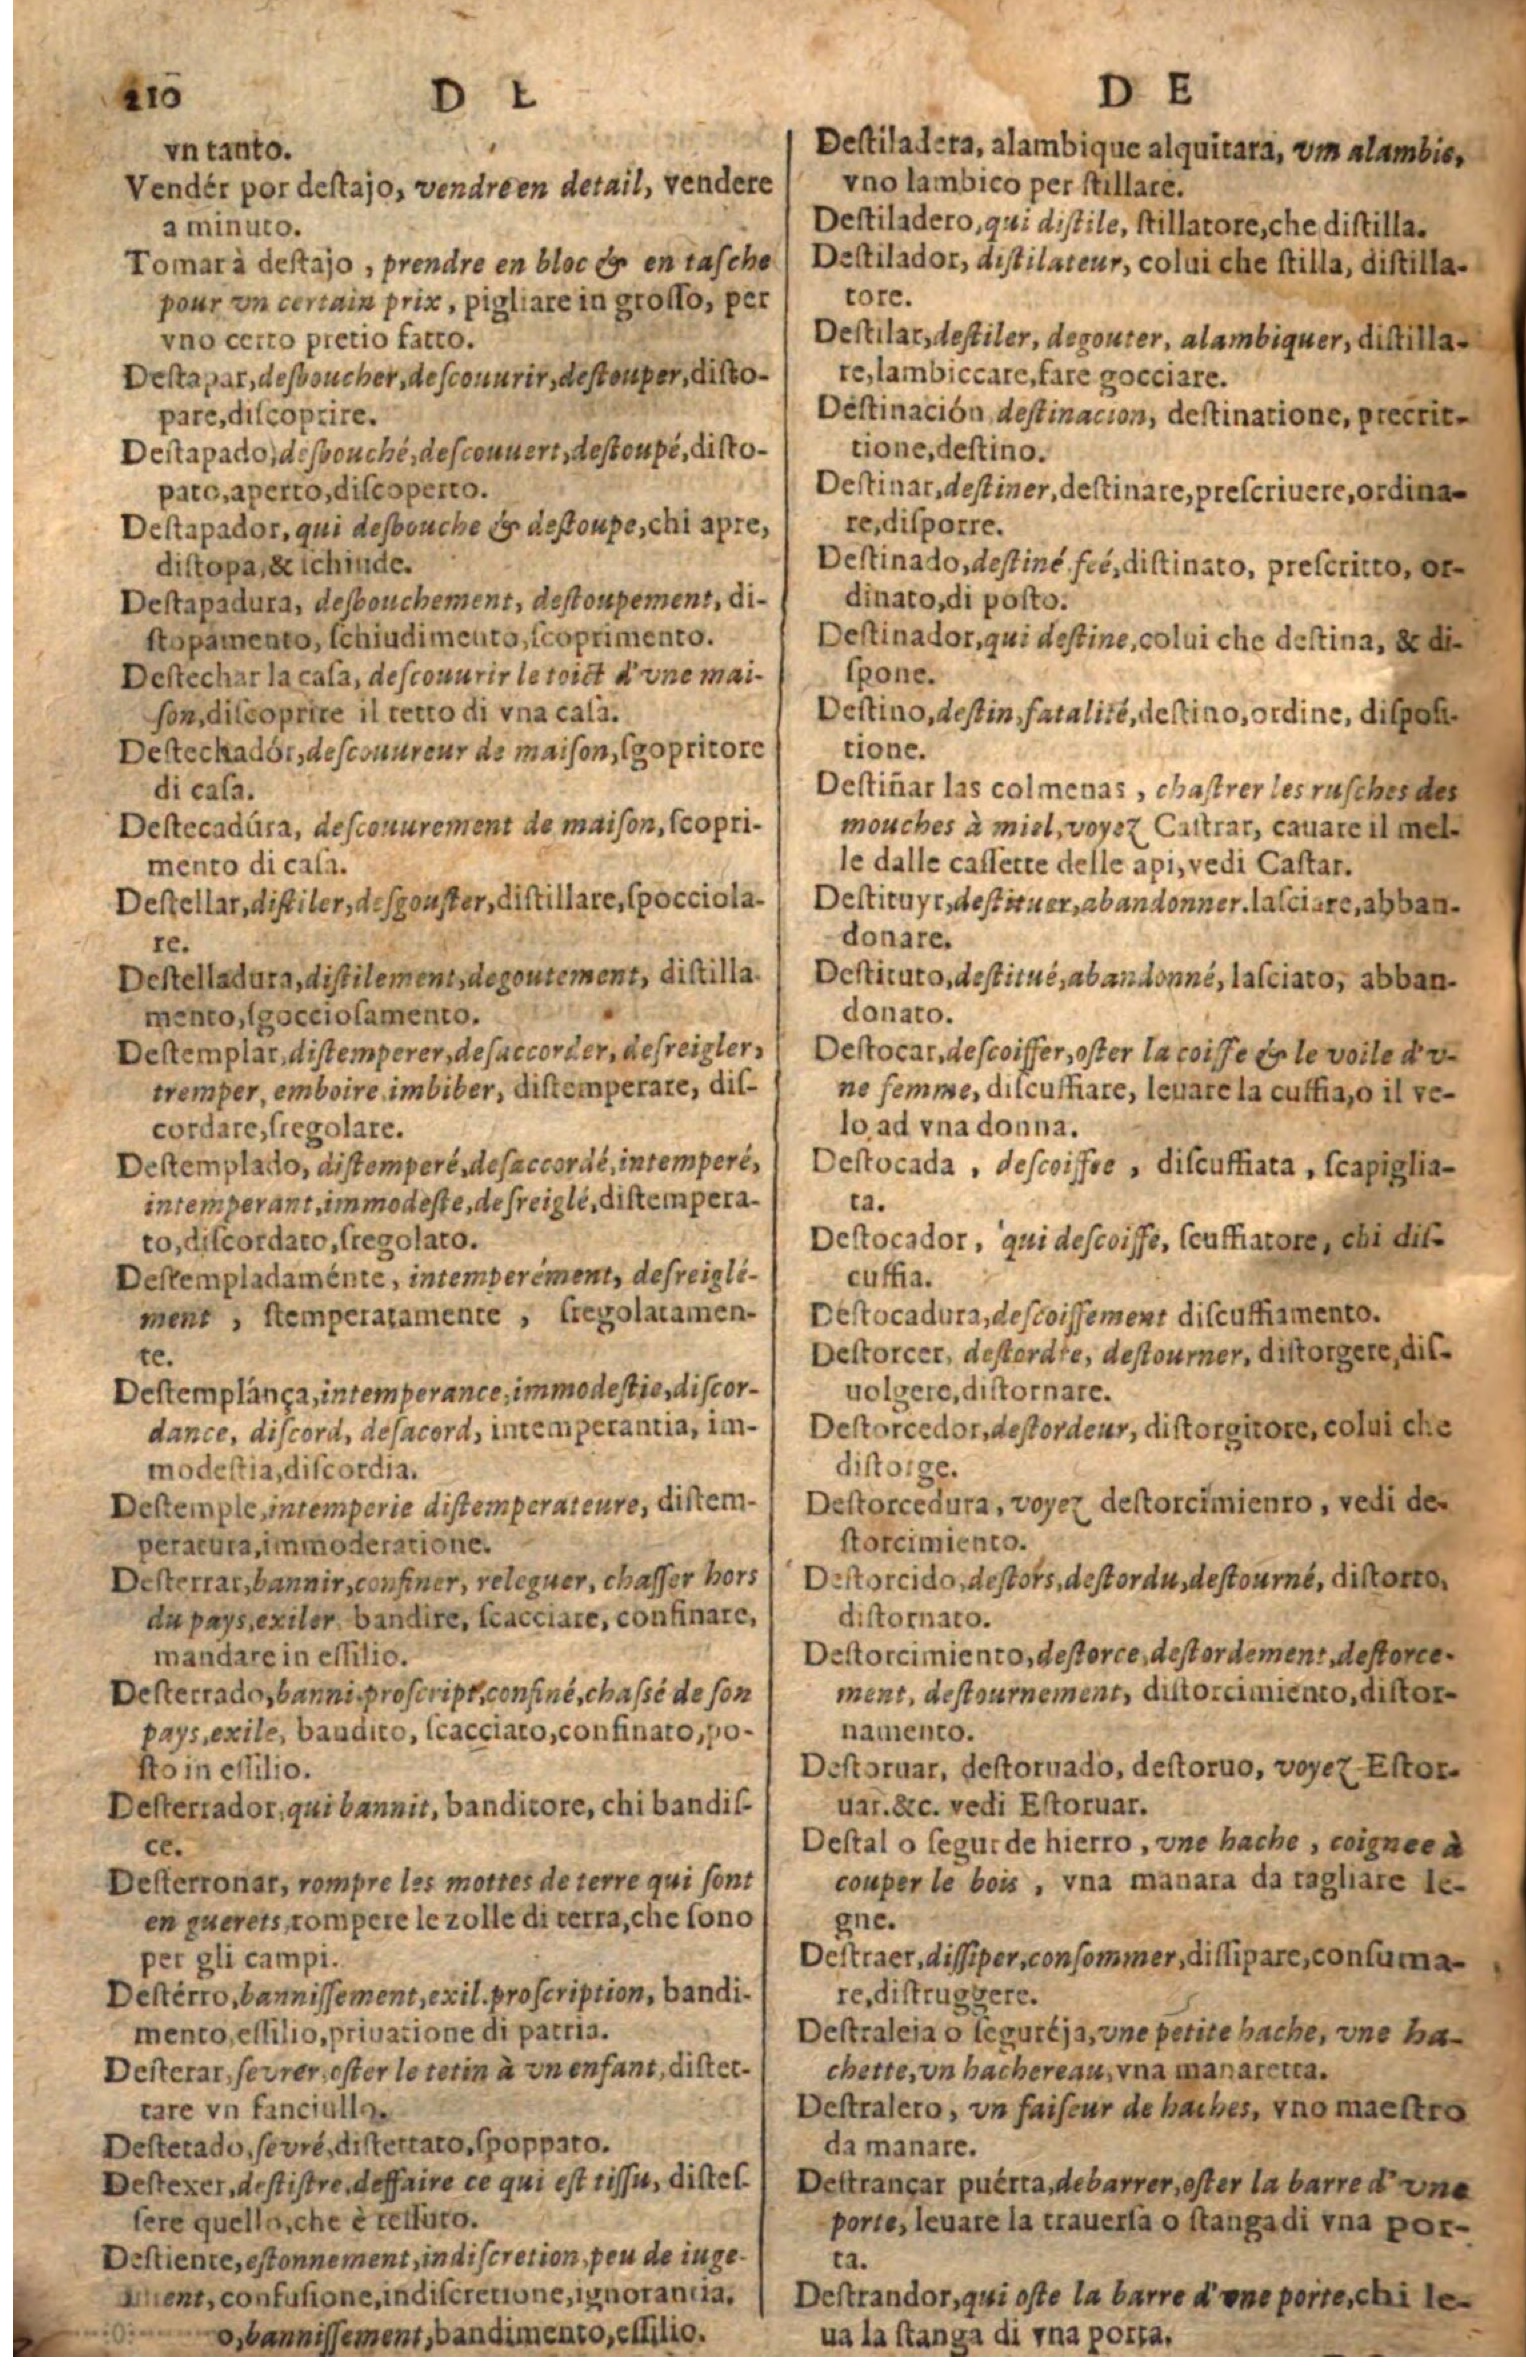 210 D E
vn tanto.
Vendér por destajo, vendre en detail, vendere
a minuto.
Tomar à destajo, prendre en bloc & en tasche
pour vn certain prix, pigliare in grosso, per
vno certo pretio fatto.
Destapar, desboucher, descouurir, destouper, disto-
pare, discoprire.
Destapado, desbouché, descouuert, destoupé, disto-
pato, aperto, discoperto.
Destapador, qui desbouche & destoupe, chi apre,
distopa, & ichiude.
Destapadura, desbouchement, destoupement, di-
stopamento, schiudimento, scoprimento.
Destechar la casa, descouurir le toict d'vne mai-
son, discoprire il tetto di vna casa.
Destechadór, descouureur de maison, sgopritore
di casa.
Destecadúra, descouurement de maison, scopri-
mento di casa.
Destellar, distiler, desgouster, distillare, spocciola-
re.
Destelladura, distilement, degoutement, distilla-
mento, sgocciosamento.
Destemplar, distemperer, desaccorder, desreigler,
tremper, emboire, imbiber, distemperare, dis-
cordare, sregolare.
Destemplado, distemperé, desaccordé, intemperé,
intemperant, immodeste, desreiglé, distempera-
to, discordato, sregolato.
Destempladaménte, intemperément, desreiglé-
ment, stemperatamente, sregolatamen-
te.
Destemplánça, intemperance, immodestie, discor-
dance, discord, desacord, intemperantia, im-
modestia, discordia.
Destemple, intemperie distemperateure, distem-
peratura, immoderatione.
Desterrar, bannir, confiner, releguer, chasser hors
du pays, exiler, bandire, scacciare, confinare,
mandare in essilio.
Desterrado, banni, proscript, confiné, chassé de son
pays, exile, bandito, scacciato, confinato, po-
sto in essilio.
Desterrador, qui bannit, banditore, chi bandis-
ce.
Desterronar, rompre les mottes de terre qui sont
en guerets, rompere le zolle di terra, che sono
per gli campi.
Destérro, bannissement, exil. proscription, bandi-
mento, essilio, priuatione di patria.
Destetar, sevrer, oster le tetin à vn enfant, distet-
tare vn fanciullo.
Destetado, sevré, distettato, spoppato.
Destexer, destistre, deffaire ce qui est tissu, distes-
sere quello, che è tessuto.
Destiente, estonnement, indiscretion, peu de iuge-
ment, confusione, indiscretione, ignorantia.
o, bannissement, bandimento, essilio.
D E
Destiladera, alambique alquitara, vm alambic,
vno lambico per stillare.
Destiladero, qui distile, stillatore, che distilla.
Destilador, distilateur, colui che stilla, distilla-
tore.
Destilar, destiler, degouter, alambiquer, distilla-
re, lambiccare, fare gocciare.
Destinación destinacion, destinatione, precrit-
tione, destino.
Destinar, destiner, destinare, prescriuere, ordina-
re, disporre.
Destinado, destiné feé, distinato, prescritto, or-
dinato, di posto.
Destinador, qui destine, colui che destina, & di-
spone.
Destino, destin, fatalité, destino, ordine, disposi-
tione.
Destiñar las colmenas, chastrer les rusches des
mouches à miel, voyez Castrar, cauare il mel-
le dalle cassette delle api, vedi Castar.
Destituyr, destituer, abandonner. lasciare, abban-
donare.
Destituto, destitué, abandonné, lasciato, abban-
donato.
Destocar, descoiffer, oster la coiffe & le voile d'v-
ne femme, discuffiare, leuare la cuffia, o il ve-
lo ad vna donna.
Destocada, descoiffee, discuffiata, scapiglia-
ta.
Destocador, qui descoiffe, scuffiatore, chi dis-
cuffia.
Destocadura, descoiffement discuffiamento.
Destorcer, destordre, destourner, distorgere, dis-
uolgere, distornare.
Destorcedor, destordeur, distorgitore, colui che
distorge.
Destorcedura, voyez destorcimienro, vedi de-
storcimiento.
Destorcido, destors, destordu, destourné, distorto,
distornato.
Destorcimiento, destorce, destordement, destorce-
ment, destournement, distorcimiento, distor-
namento.
Destoruar, destoruado, destoruo, voyez Estor-
uar. &c. vedi Estoruar.
Destal o segur de hierro, vne hache, coignee à
couper le bois, vna manara da tagliare le-
gne.
Destraer, dissiper, consommer, dissipare, consuma-
re, distruggere.
Destraleia o seguréja, vne petite hache, vne ha-
chette, vn hachereau, vna manaretta.
Destralero, vn faiseur de haches, vno maestro
da manare.
Destrançar puérta, debarrer, oster la barre d'vne
porte, leuare la trauersa o stanga di vna por-
ta.
Destrandor, qui oste la barre d'vne porte, chi le-
ua la stanga di vna porta.